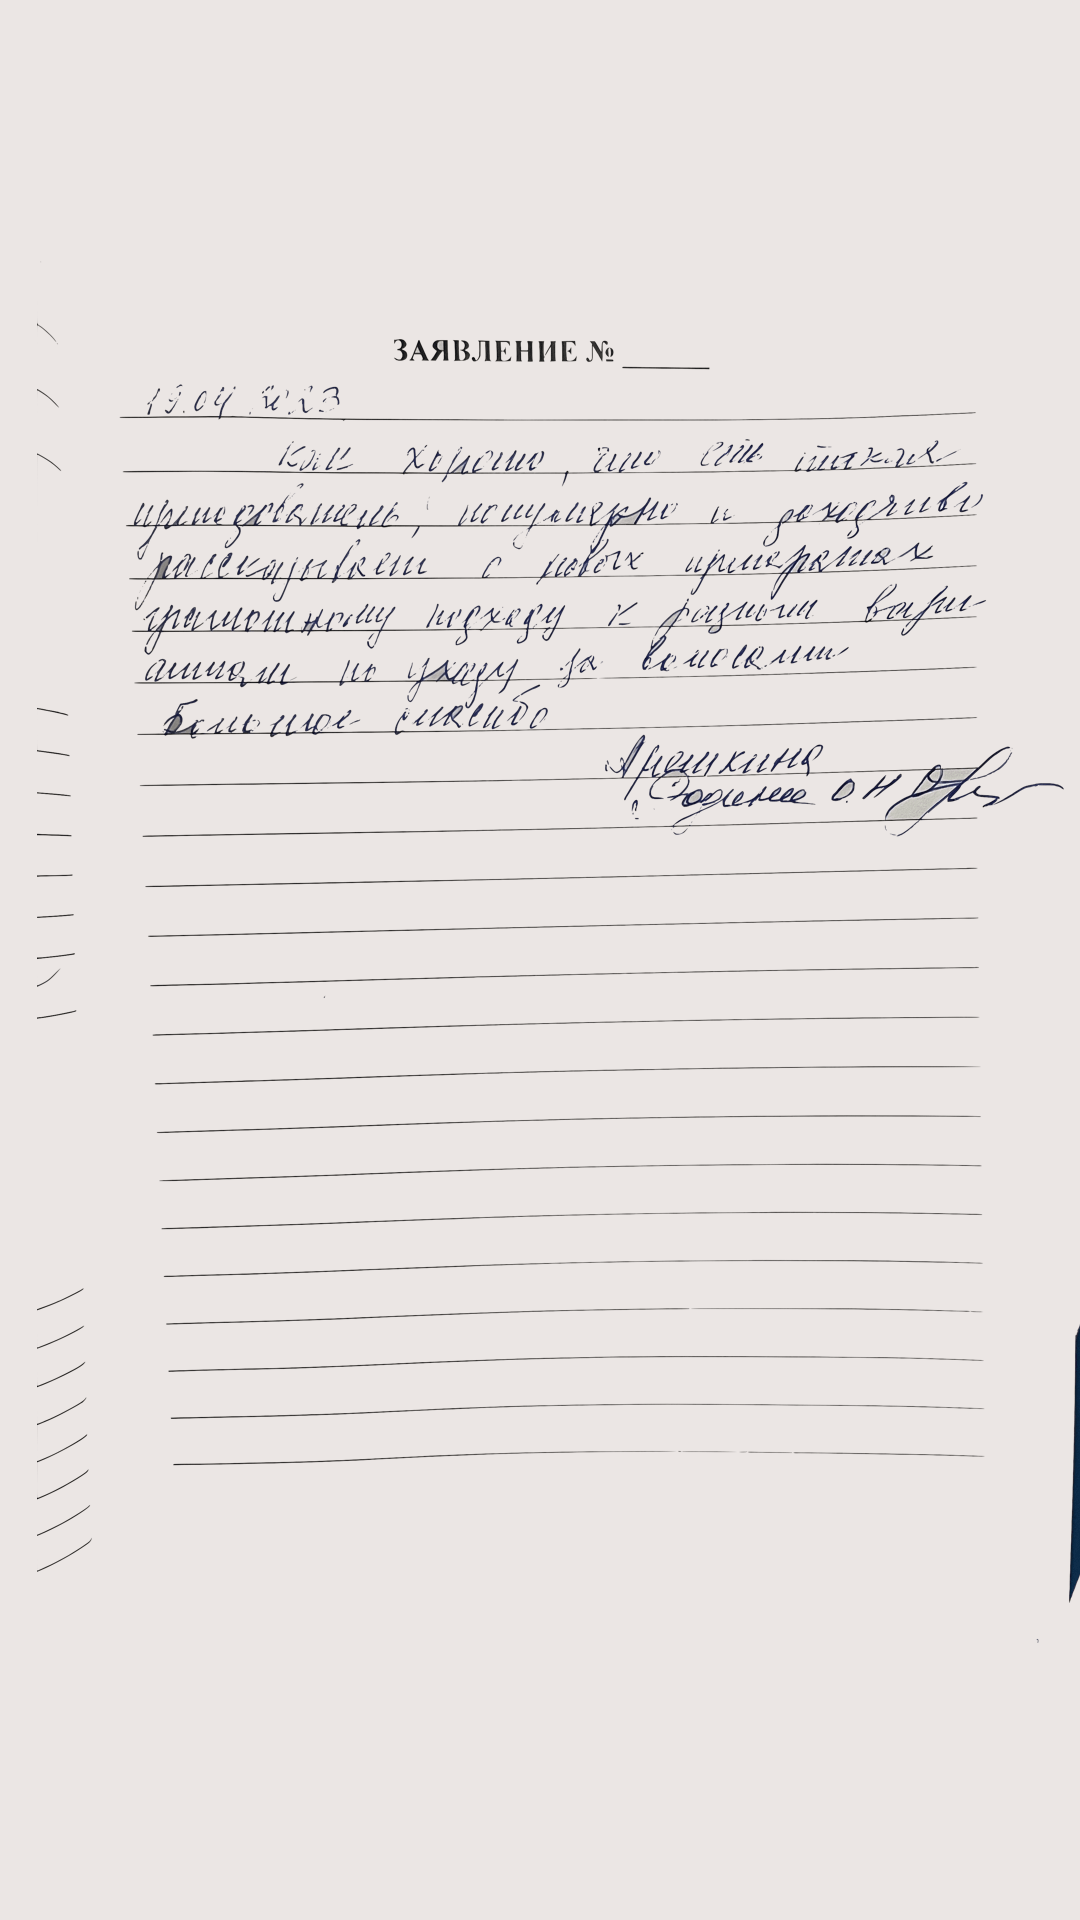 ЗАЯВЛЕНИЕ №
19.04 2023
Как хорошо, что есть такая
преподаватель, популярно и доходчиво
рассказывает о новых препаратах
грамотному подходу к разным вари-
антам по уходу за волосами
Большое спасибо
Арешкина
О.Н